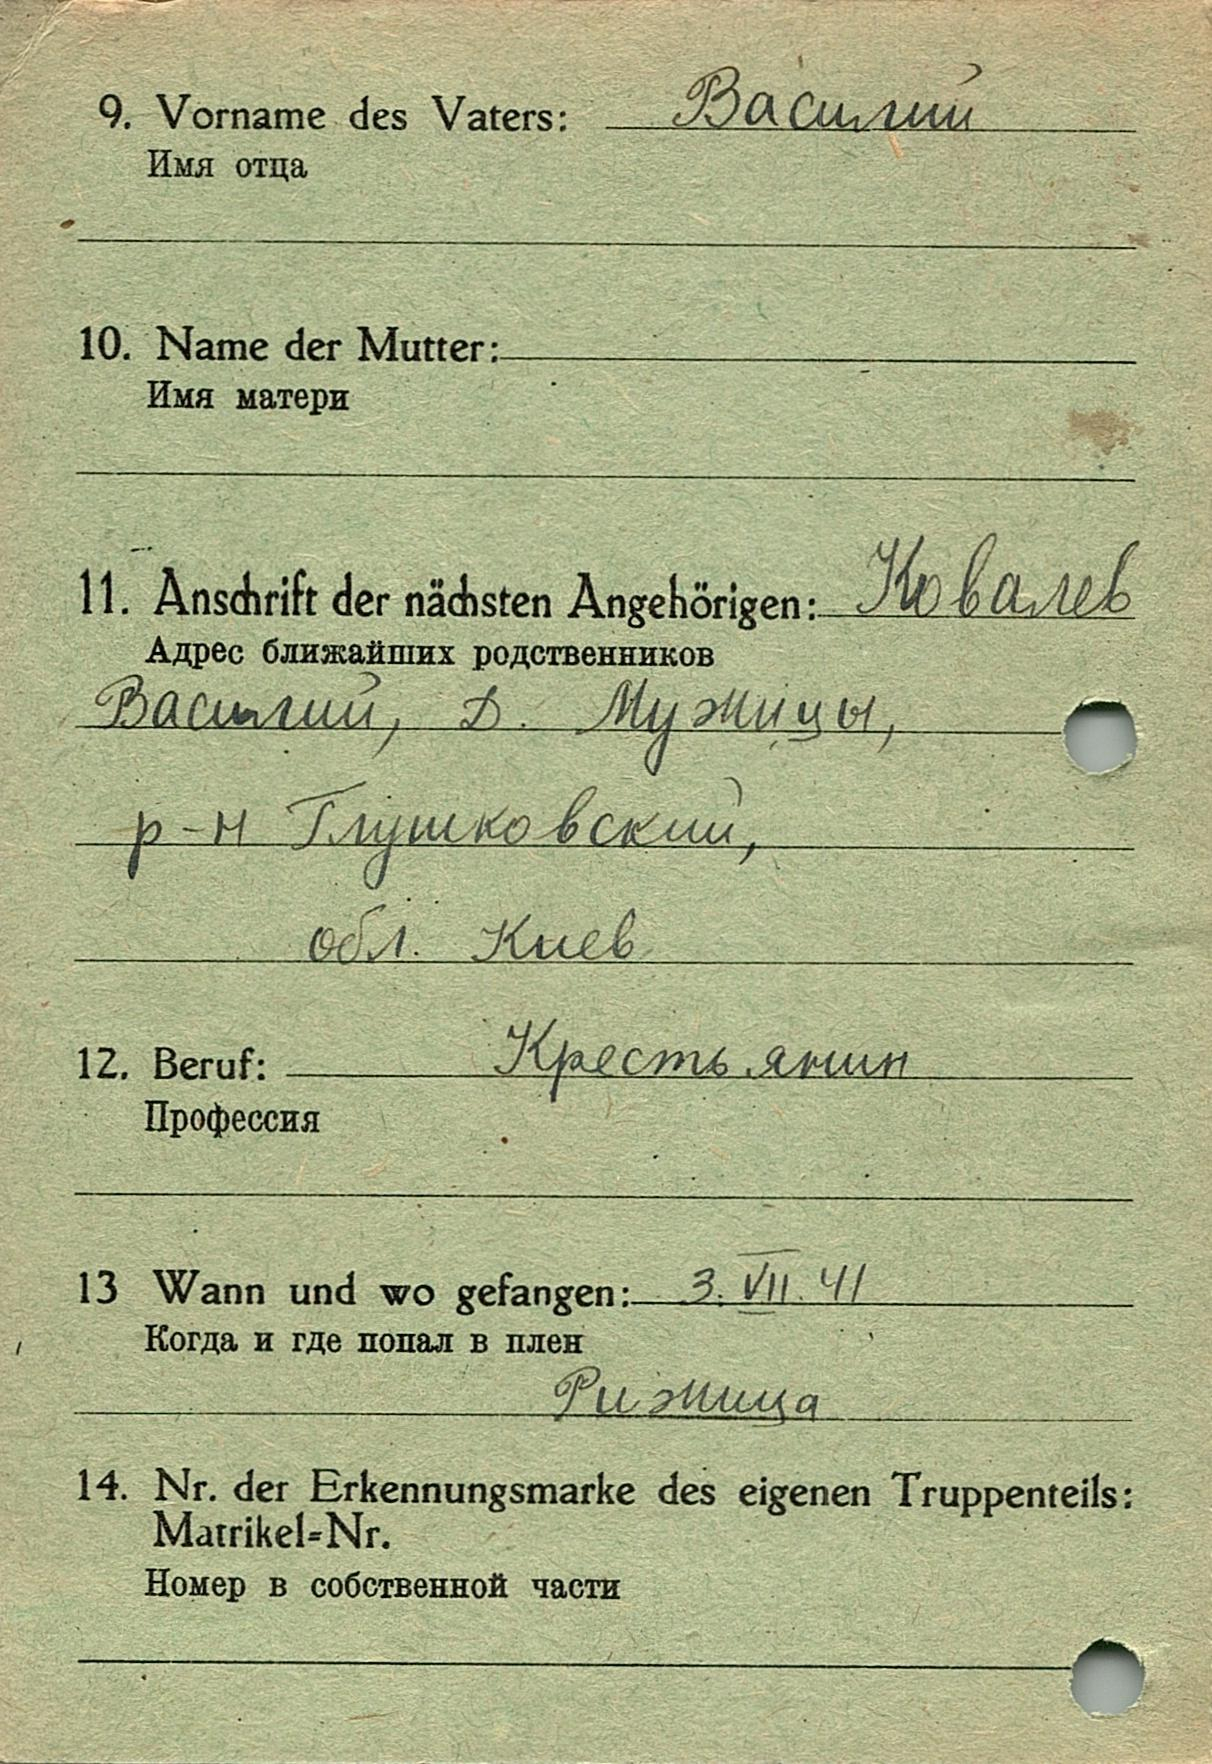 9. Vorname des Vaters: Василий
Имя отца
10. Name der Mutter:
Имя матери
11. Anschrift der nächsten Angehörigen: Ковалев
Адрес ближайших родственников
Василий, Д. Мужицы,
р-н Глушковский,
обл. Киев
12. Beruf: Крестьянин
Профессия
13 Wann und wo gefangen: 3. VII. 41
Когда и где попал в плен
Рижица
14. Nr. der Erkennungsmarke des eigenen Truppenteils:
Matrikel=Nr.
Номер в собственной части